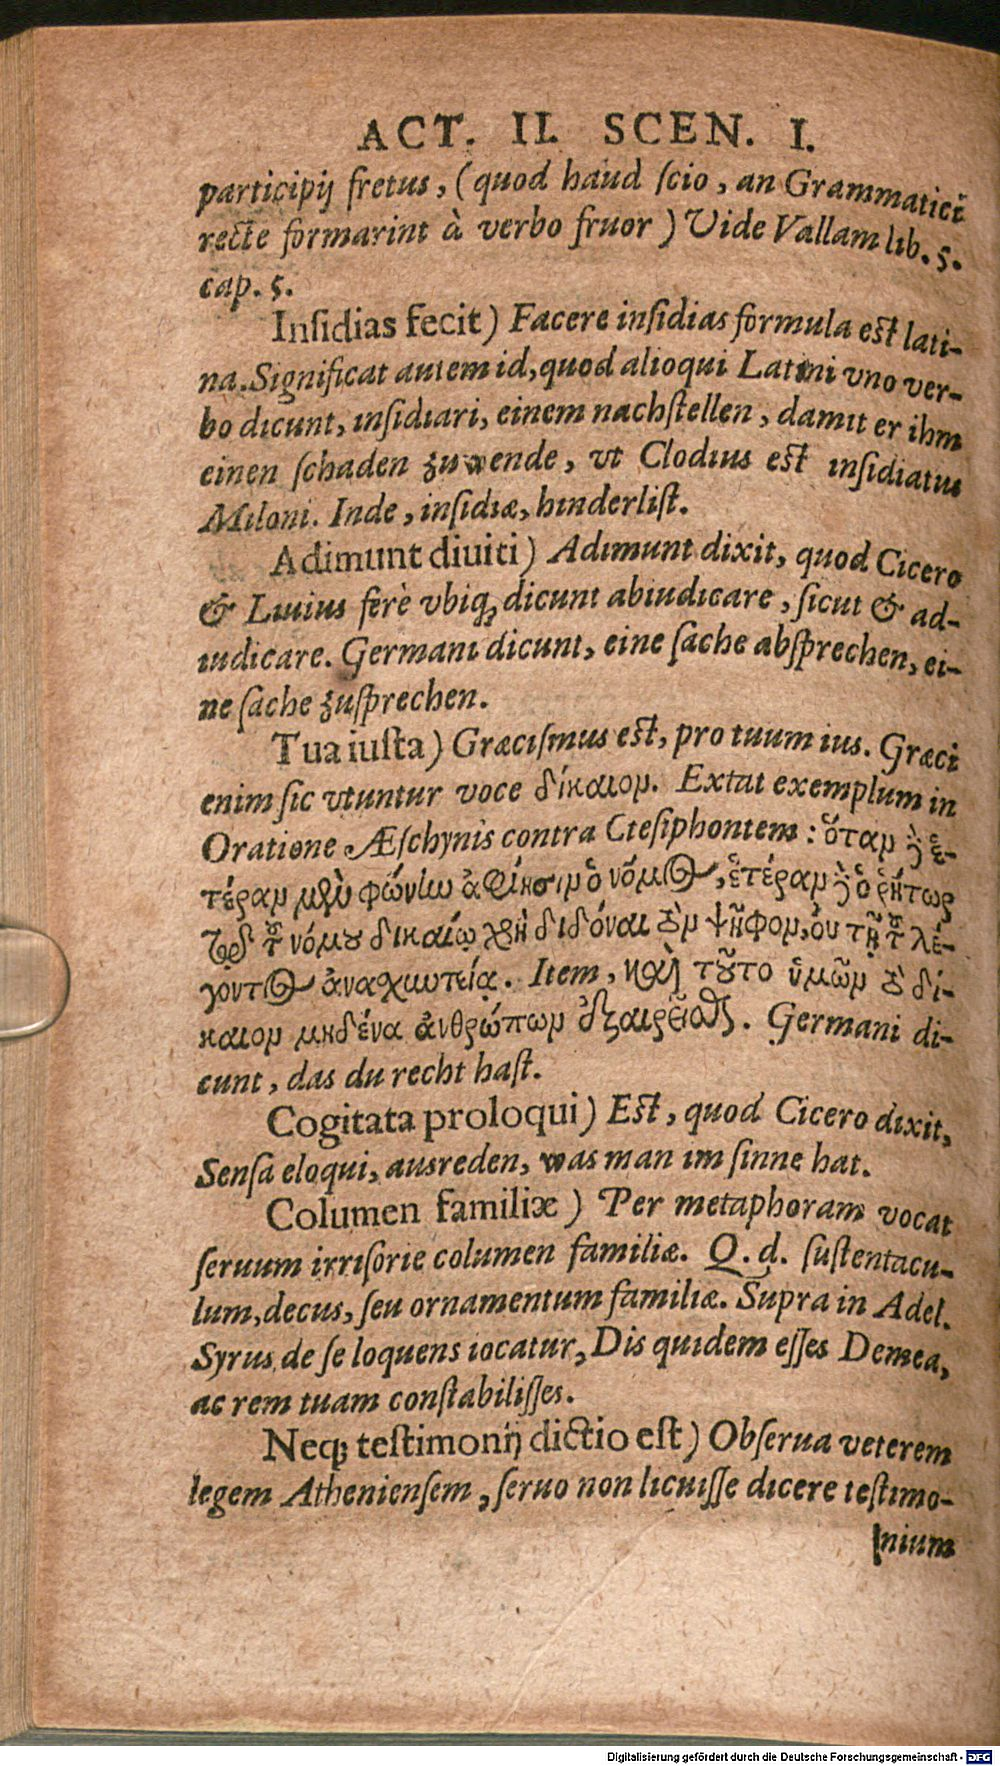 ACT. II. SCEN. I.
participij fretus, (quod haud ſcio, an Grammatici
recte formarint à verbo fruor) Vide Vallam lib. 5.
cap. 5.
Inſidias fecit) Facere inſidias formula eſt lati-
na. Significat autem id, quod alioqui Latini vno ver-
bo dicunt, inſidiari, einem nachſtellen, damit er ihm
einen ſchaden zuwende, vt Clodius eſt inſidiatus
Miloni. Inde, inſidiæ, hinderliſt.
Adimunt diuiti) Adimunt dixit, quod Cicero
& Liuius ferè vbiq; dicunt abiudicare, ſicut & ad-
iudicare. Germani dicunt, eine ſache abſprechen, ei-
ne ſache zuſprechen.
Tua iuſta) Græciſmus eſt, pro tuum ius. Græci
enim ſic vtuntur voce δίκαιομ. Extat exemplum in
Oratione Æſchynis contra Cteſiphontem: ὅταμ ἢ ἑ-
τέραμ μὲν φωνὴν ἀφίησιμ ὁ νόμος, ἑτέραμ ἢ ὁ ῥήτωρ
τῷ τοῦ νόμου δικαίῳ χρὴ διδόναι τὴμ ψῆφομ, οὐ τῇ τοῦ λέ-
γοντος ἀναχωτείᾳ. Item, καὶ τοῦτο ὑμῶμ τὸ δί-
καιομ μηδένα ἀνθρώπωμ ἐξαιρεῖσθαι. Germani di-
cunt, das du recht haſt.
Cogitata proloqui) Eſt, quod Cicero dixit,
Senſa eloqui, ausreden, was man im ſinne hat.
Columen familiæ) Per metaphoram vocat
ſeruum irriſorie columen familiæ. Q. d. ſuſtentacu-
lum, decus, ſeu ornamentum familiæ. Supra in Adel.
Syrus de ſe loquens iocatur, Dis quidem eſſes Demea,
ac rem tuam conſtabiliſſes.
Neq; teſtimonij dictio eſt) Obſerua veterem
legem Athenienſem, ſeruo non licuiſſe dicere teſtimo-
nium
Digitalisierung gefördert durch die Deutsche Forschungsgemeinschaft - DFG